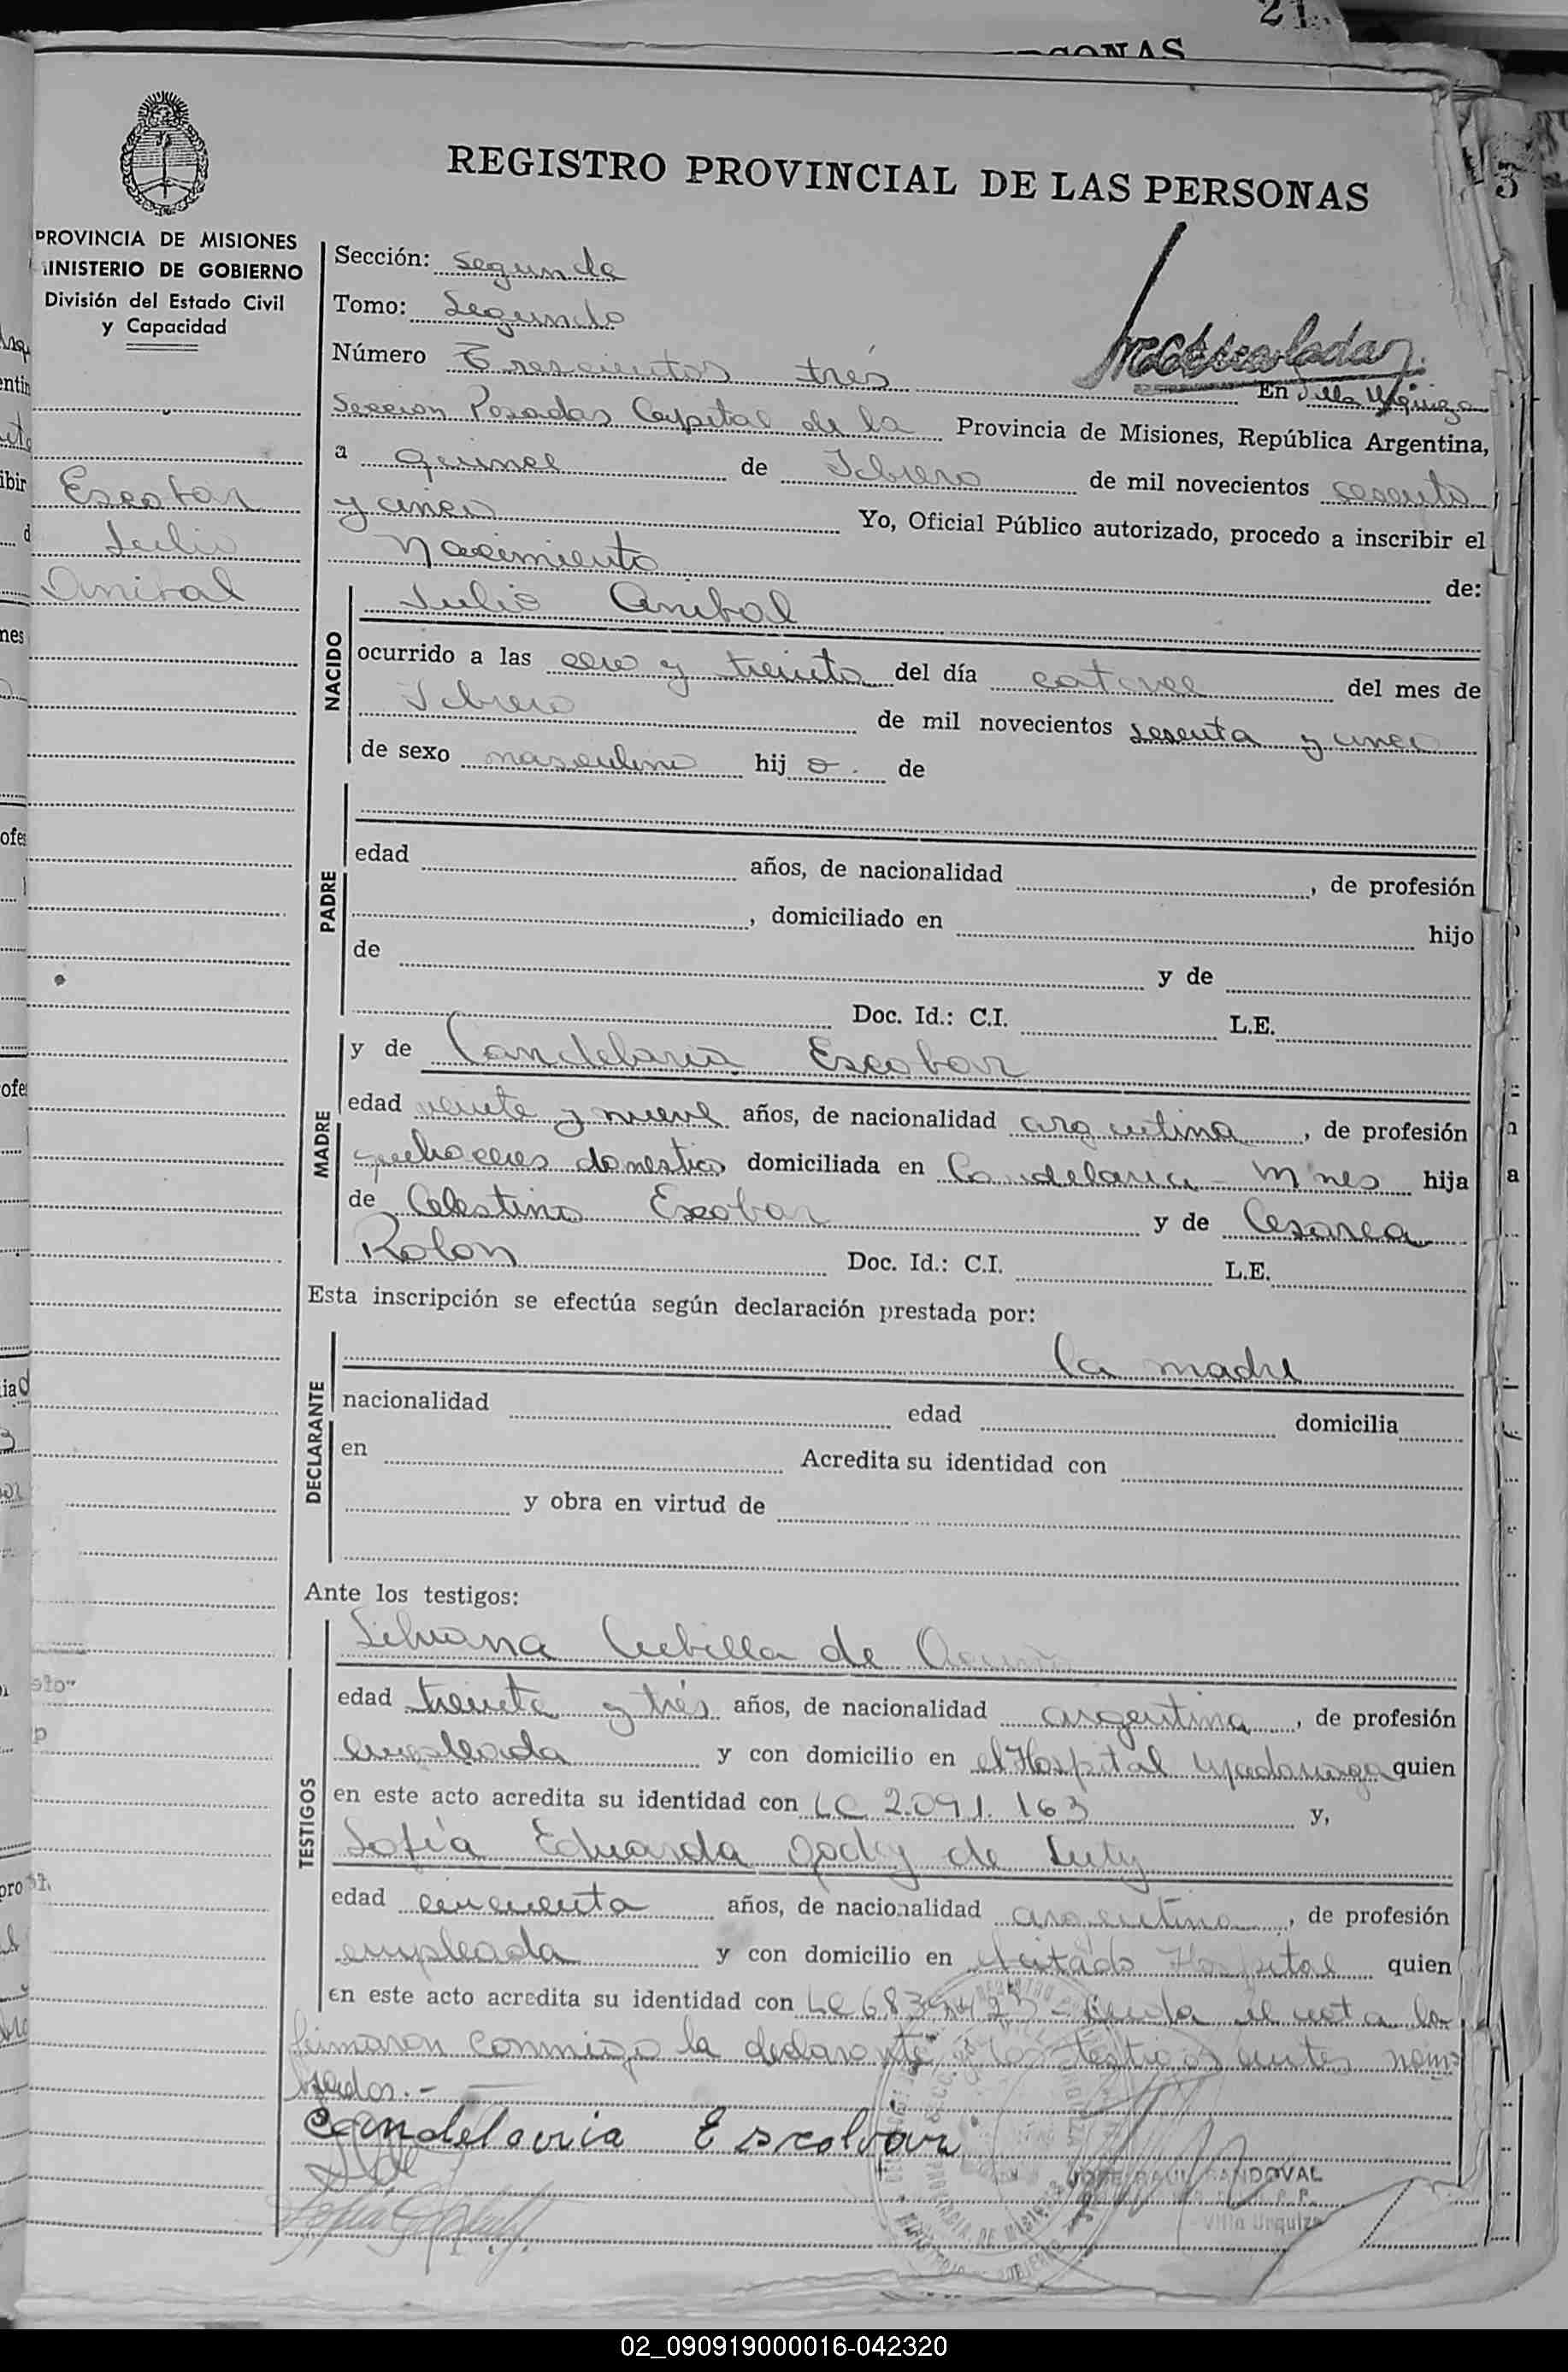 21
PERSONAS
3
REGISTRO PROVINCIAL DE LAS PERSONAS
PROVINCIA DE MISIONES
MINISTERIO DE GOBIERNO
División del Estado Civil
y Capacidad
Escobar
Julio
Anibal
Sección: Segunda
Tomo: Segundo
Número Trescientos trés En Villa Urquiza
Sección Posadas Capital de la Provincia de Misiones, República Argentina,
a quince de Febrero de mil novecientos sesenta
y cinco Yo, Oficial Público autorizado, procedo a inscribir el
Nacimiento de:
NACIDO
Julio Anibal
ocurrido a las cero y treinta del día catorce del mes de
Febrero de mil novecientos sesenta y cinco
de sexo masculino hij o. de
PADRE
edad años, de nacionalidad , de profesión
, domiciliado en hijo
de y de
Doc. Id.: C.I. L.E.
MADRE
y de Candelaria Escobar
edad veinte y nueve años, de nacionalidad argentina , de profesión
quehaceres domestico domiciliada en Candelaria - Mnes hija
de Celestino Escobar y de Cesarea
Rolon Doc. Id.: C.I. L.E.
Esta inscripción se efectúa según declaración prestada por:
DECLARANTE
la madre
nacionalidad edad domicilia
en Acredita su identidad con
y obra en virtud de
Ante los testigos:
TESTIGOS
Silvana Cubilla de
edad treinta y trés años, de nacionalidad argentina , de profesión
empleada y con domicilio en el Hospital Madariaga quien
en este acto acredita su identidad con LC 2.091.163 y,
Sofía Eduarda Godoy de
edad cincuenta años, de nacionalidad argentina , de profesión
empleada y con domicilio en el citado Hospital quien
en este acto acredita su identidad con LC - Leida el acta la
firmaron conmigo la declarante y los testigos antes nom-
brados.-
Candelaria Escolvar
JOSE RAUL SANDOVAL
Villa Urquiza
02_090919000016-042320